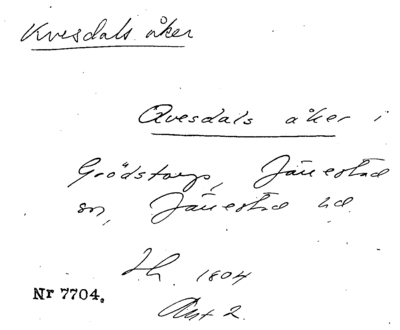 Kvesdals åker
Qvesdals åker i
Grödstorp, Järrestad
sn, Järrestad hd
Sk. 1804
Akt 2.
Nr 7704.